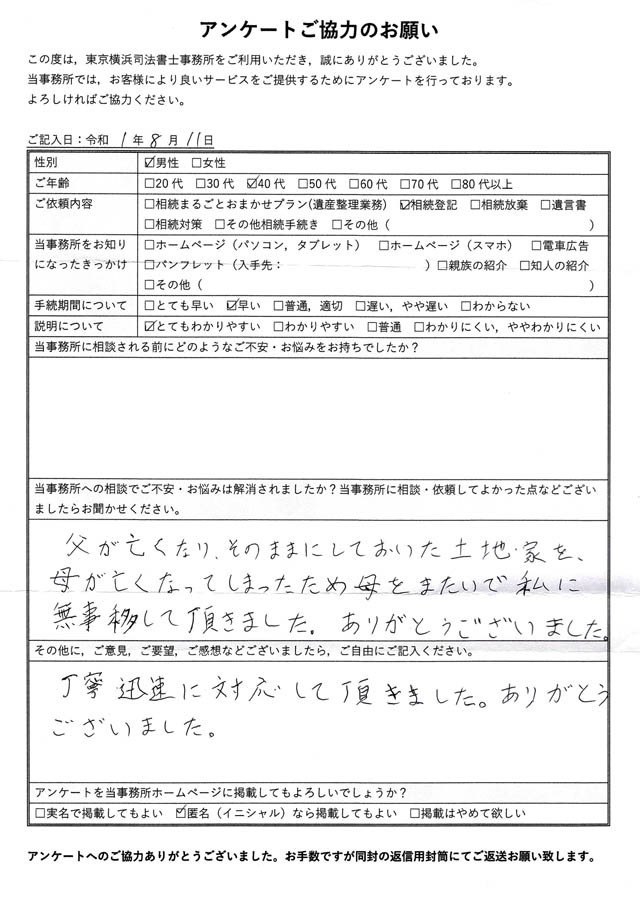 アンケートご協力のお願い
この度は，東京横浜司法書士事務所をご利用いただき，誠にありがとうございました。
当事務所では，お客様により良いサービスをご提供するためにアンケートを行っております。
よろしければご協力ください。
ご記入日：令和 1 年 8 月 11 日
性別 ☑男性 □女性
ご年齢 □20代 □30代 ☑40代 □50代 □60代 □70代 □80代以上
ご依頼内容 □相続まるごとおまかせプラン(遺産整理業務) ☑相続登記 □相続放棄 □遺言書
□相続対策 □その他相続手続き □その他（ ）
当事務所をお知り □ホームページ（パソコン，タブレット） □ホームページ（スマホ） □電車広告
になったきっかけ □パンフレット（入手先： ）□親族の紹介 □知人の紹介
□その他（ ）
手続期間について □とても早い ☑早い □普通，適切 □遅い，やや遅い □わからない
説明について ☑とてもわかりやすい □わかりやすい □普通 □わかりにくい，ややわかりにくい
当事務所に相談される前にどのようなご不安・お悩みをお持ちでしたか？
当事務所への相談でご不安・お悩みは解消されましたか？当事務所に相談・依頼してよかった点などござい
ましたらお聞かせください。
父が亡くなり、そのままにしておいた土地・家を、
母が亡くなってしまったため母をまたいで私に
無事移して頂きました。ありがとうございました。
その他に，ご意見，ご要望，ご感想などございましたら，ご自由にご記入ください。
丁寧迅速に対応して頂きました。ありがとう
ございました。
アンケートを当事務所ホームページに掲載してもよろしいでしょうか？
□実名で掲載してもよい ☑匿名（イニシャル）なら掲載してもよい □掲載はやめて欲しい
アンケートへのご協力ありがとうございました。お手数ですが同封の返信用封筒にてご返送お願い致します。